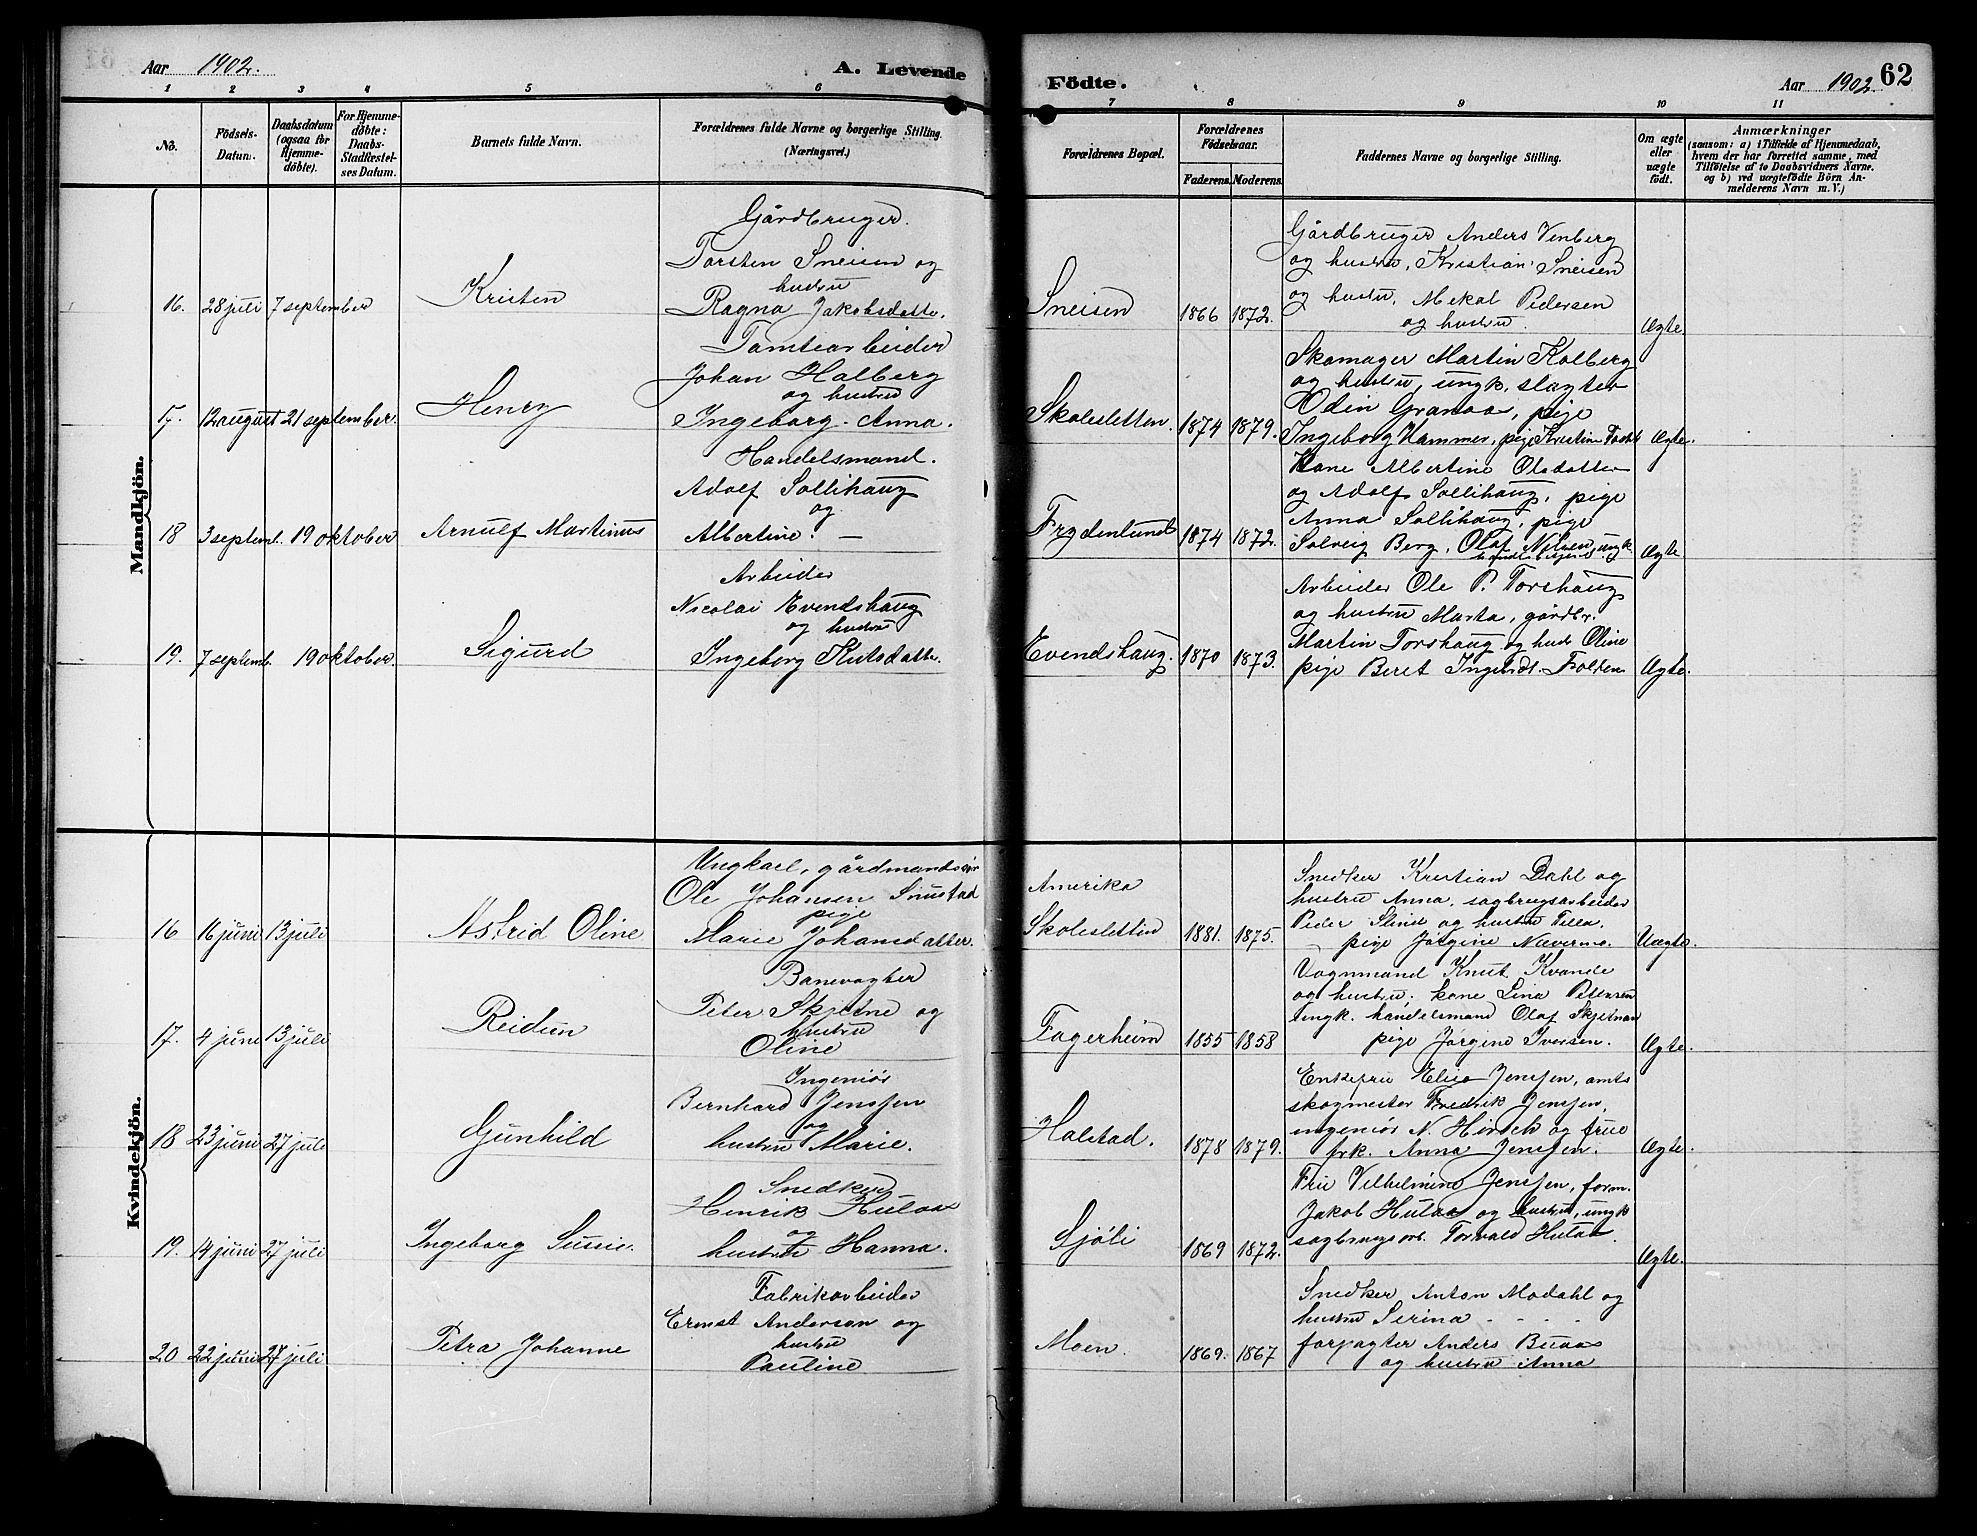 Aar 1902. A. Levende Födte. Aar 1902. 62
1 2 3 4 5 6 7 8 9 10 11
No.
Födsels-Datum.
Daabsdatum (ogsaa for Hjemmedöbte).
For Hjemmedöbte: Daabs-Stadfæstelses Datum.
Barnets fulde Navn.
Forældrenes fulde Navne og borgerlige Stilling. (Næringsvei.)
Forældrenes Bopæl.
Forældrenes Födselsaar.
Faderens. Moderens.
Faddernes Navne og borgerlige Stilling.
Om ægte eller uægte födt.
Anmærkninger
(saasom: a) i Tilfælde af Hjemmedaab, hvem der har forrettet samme, med Tilföielse af to Daabsvidners Navne. og b) ved uægtefödte Börn Anmelderens Navn m. V.)
Mandkjön.
16. 28 juli 7 september Kristen
Gårdbruger.
Torsten Sneisen og
hustru
Ragna Jakobsdatter.
Sneisen 1866 1872.
Gårdbruger Anders Venberg
og hustru, Kristian Sneisen
og hustru, Mekal Pedersen
og hustru.
Ægte.
17. 12 august 21 september. Henry
Tomtearbeider
Johan Halberg
og hustru
Ingeborg Anna.
Skolesletten. 1874 1879.
Skomager Martin Kolberg
og hustru, ungk. slagter
Odin Granaas, pige
Ingeborg Hammer, pige Kristine
Ægte.
18 3 septemb. 19 oktober Arnulf Martinus
Handelsmand.
Adolf Sollihaug
og
Albertine. —
Frydenlund 1874 1872.
Kone Albertine Olsdatter
og Adolf Sollihaug, pige
Anna Sollihaug, pige
Solveig Berg, Olaf Nilsen, ungk.
Ægte
19. 7 septemb. 19 oktober. Sigurd
Arbeider
Nicolai Evendshaug
og hustru
Ingeborg Knutsdatter.
Evendshaug. 1870 1873.
Arbeider Ole P. Torshaug
og hustru Marta, gårdbr.
Martin Torshaug og hust. Oline
pige Beret Ingebr.dt. Folden
Ægte.
Kvindekjön.
16 16 juni 13 juli Astrid Oline
Ungkarl, gårdmandssön
Ole Johansen Snustad
pige
Marie Johansdatter.
Amerika
Skolesletten 1881. 1875.
Snedker Kristian Dahl og
hustru Anna, sagbrugsarbeider
Peder Slind og hustru
pige Jørgine Nævermo.
Uægte.
17. 4 juni 13 juli Reidun
Banevogter
Peter Skjetne og
hustru
Oline
Fagerheim 1855 1858
Vognmand Knut Kvande
og hustru; kone Lina Petersen
ungk. handelsmand Olaf Skjetnan
pige Jørgine Iversen.
Ægte.
18 23 juni 27 juli Gunhild
Ingeniør
Bernhard Jenssen
og
hustru Marie.
Halstad. 1878 1879.
Enkefru Elise Jenssen, amts
skogmester Fredrik Jenssen,
ingeniør N. Hirsch og frue
frk. Anna Jenssen.
Ægte.
19. 14 juni 27 juli Ingeborg Sussie.
Snedker
Henrik Hulaas
og
hustru Hanna.
Sjøli 1869 1872.
Fru Vilhelmine Jenssen, form.
Jakob Hulaas og hustru, ungk
sagbrugsarb. Torvald Hulaas.
Ægte.
20 22 juni 27 juli Petra Johanne
Fabrikarbeider
Ernst Anderson og
hustru
Pauline
Moen. 1869. 1867
Snedker Anton Modahl og
hustru Serina
forpagter Anders Buaas
og hustru Anna